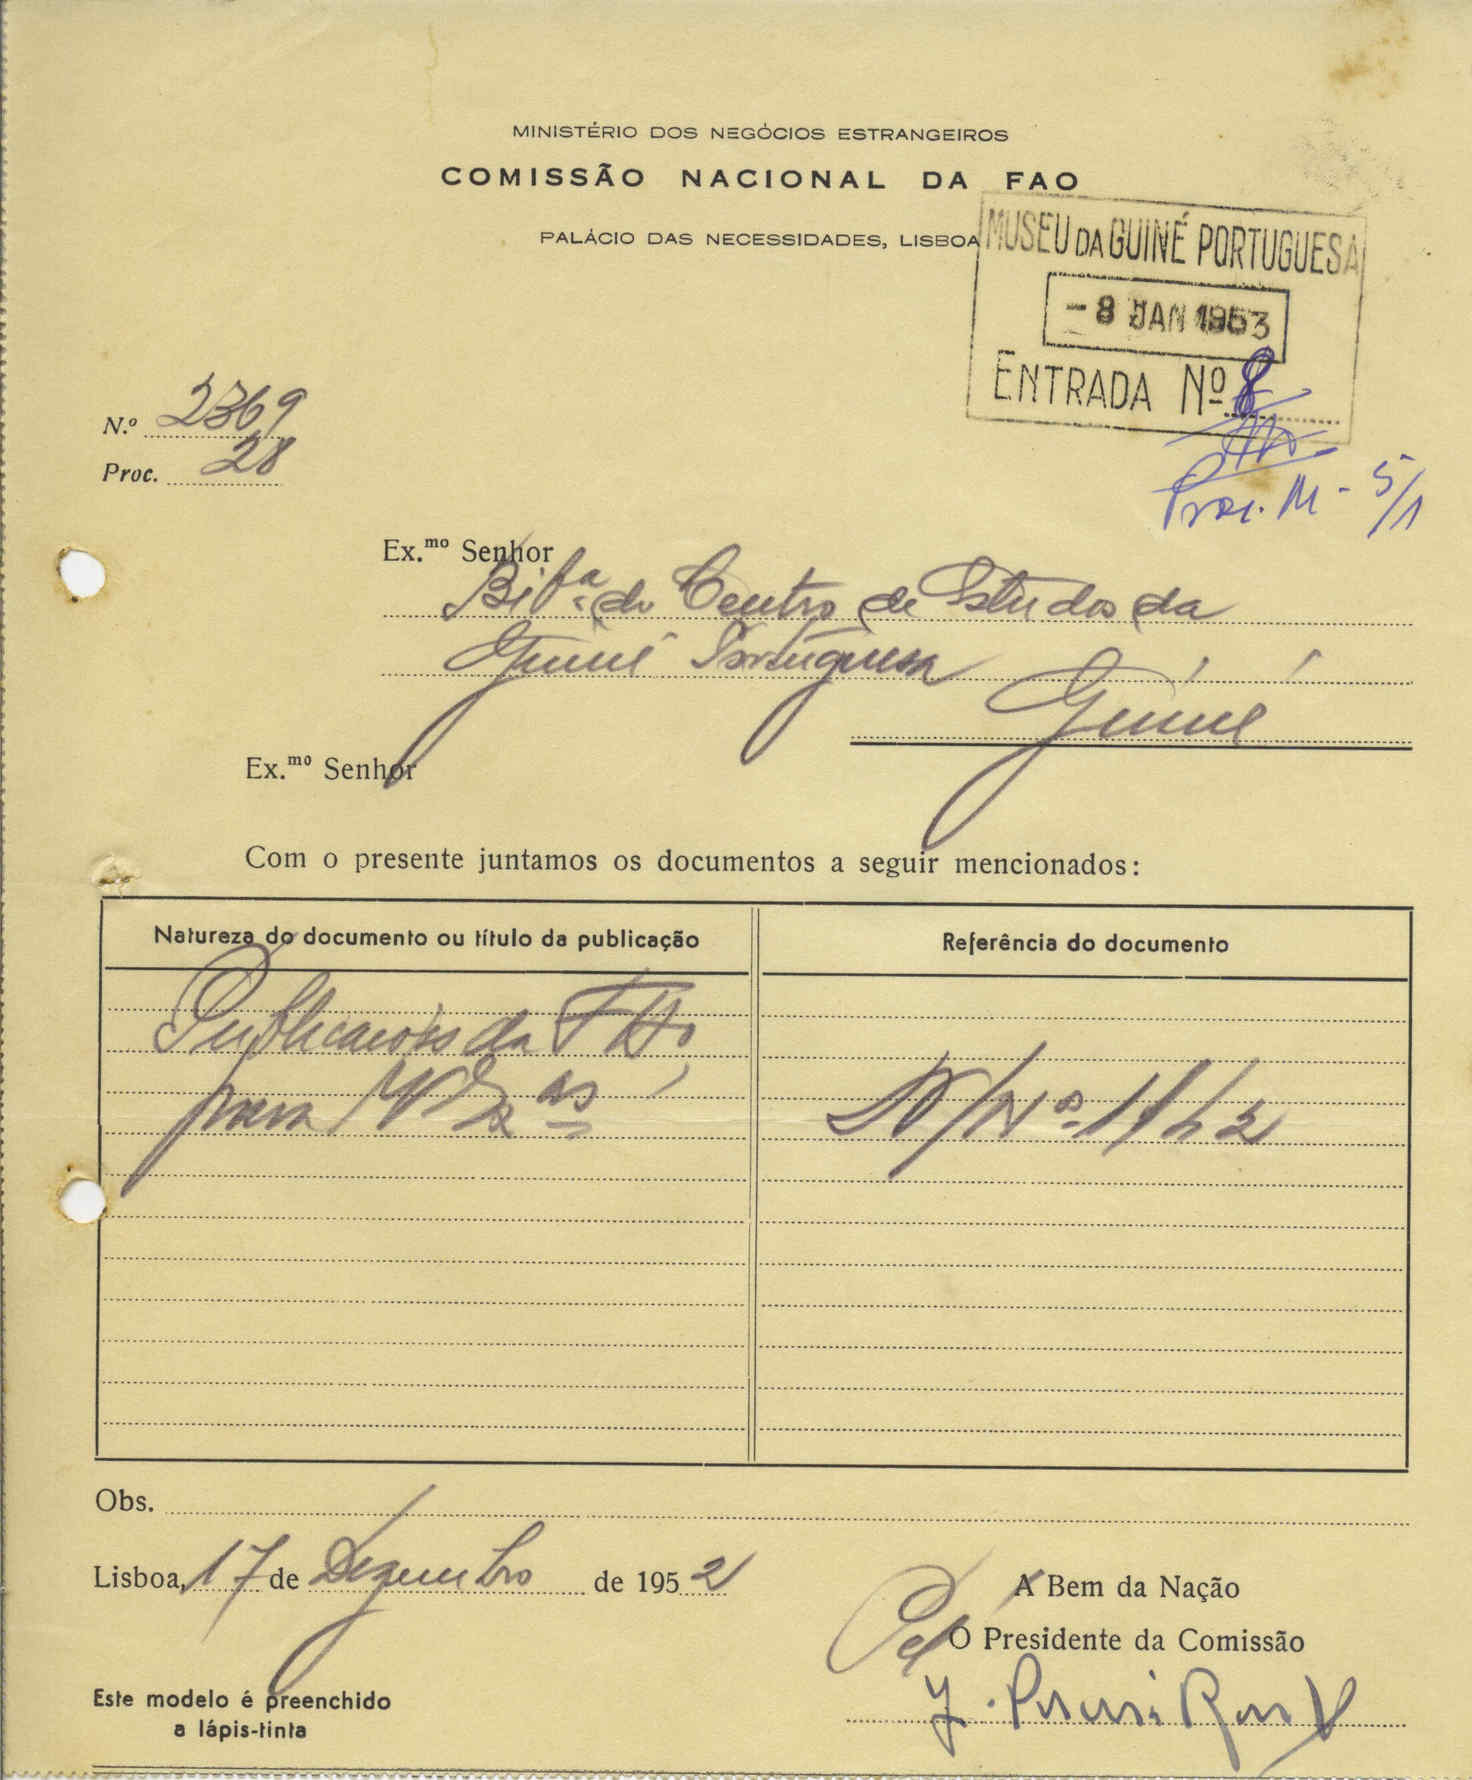 MINISTÉRIO DOS NEGÓCIOS ESTRANGEIROS
COMISSÃO NACIONAL DA FAO
PALÁCIO DAS NECESSIDADES, LISBOA
MUSEU DA GUINÉ PORTUGUESA
-8 JAN 1953
ENTRADA Nº 8
N.º 2369
Proc. 28
Proc. M - 5/1
Ex.mo Senhor
do Centro de Estudos da
Guiné Portuguesa
Guiné
Ex.mo Senhor
Com o presente juntamos os documentos a seguir mencionados:
Natureza do documento ou título da publicação
Referência do documento
Publicações da FAO
para
Obs.
Lisboa, 17 de Dezembro de 1952
A Bem da Nação
Pel O Presidente da Comissão
Este modelo é preenchido
a lápis-tinta